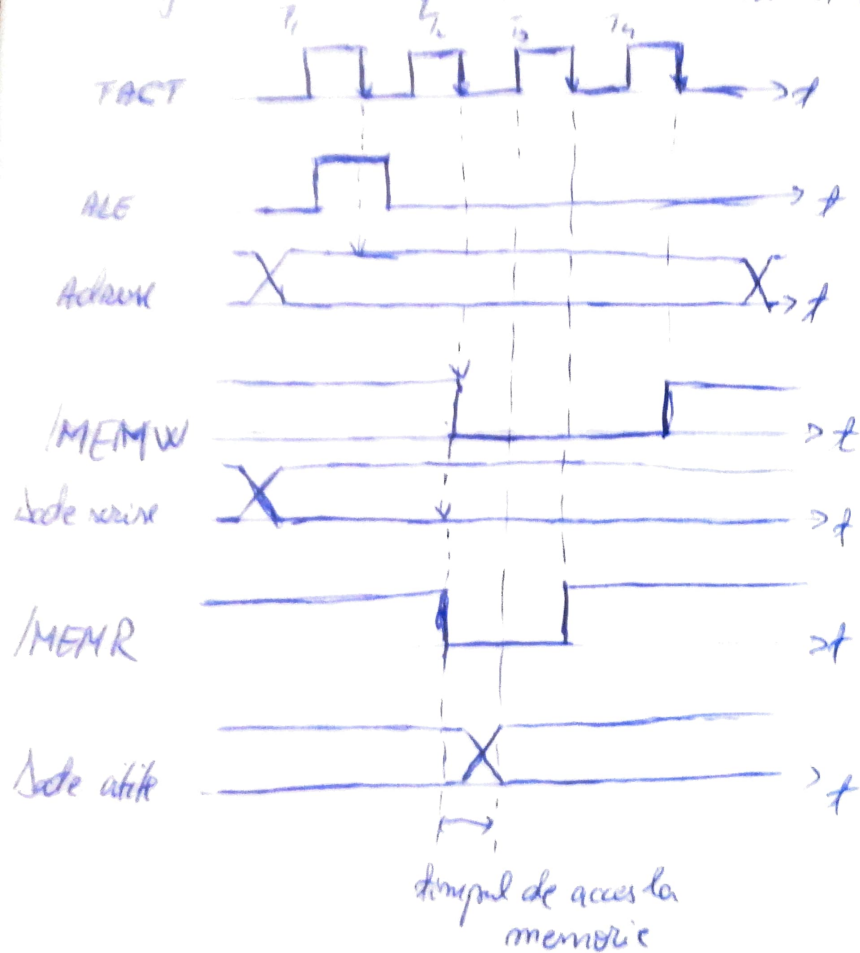 T1 T2 T3 T4
TACT t
ALE t
Adrese t
/MEMW t
Date scrise t
/MEMR t
Date citite t
timpul de acces la
memorie